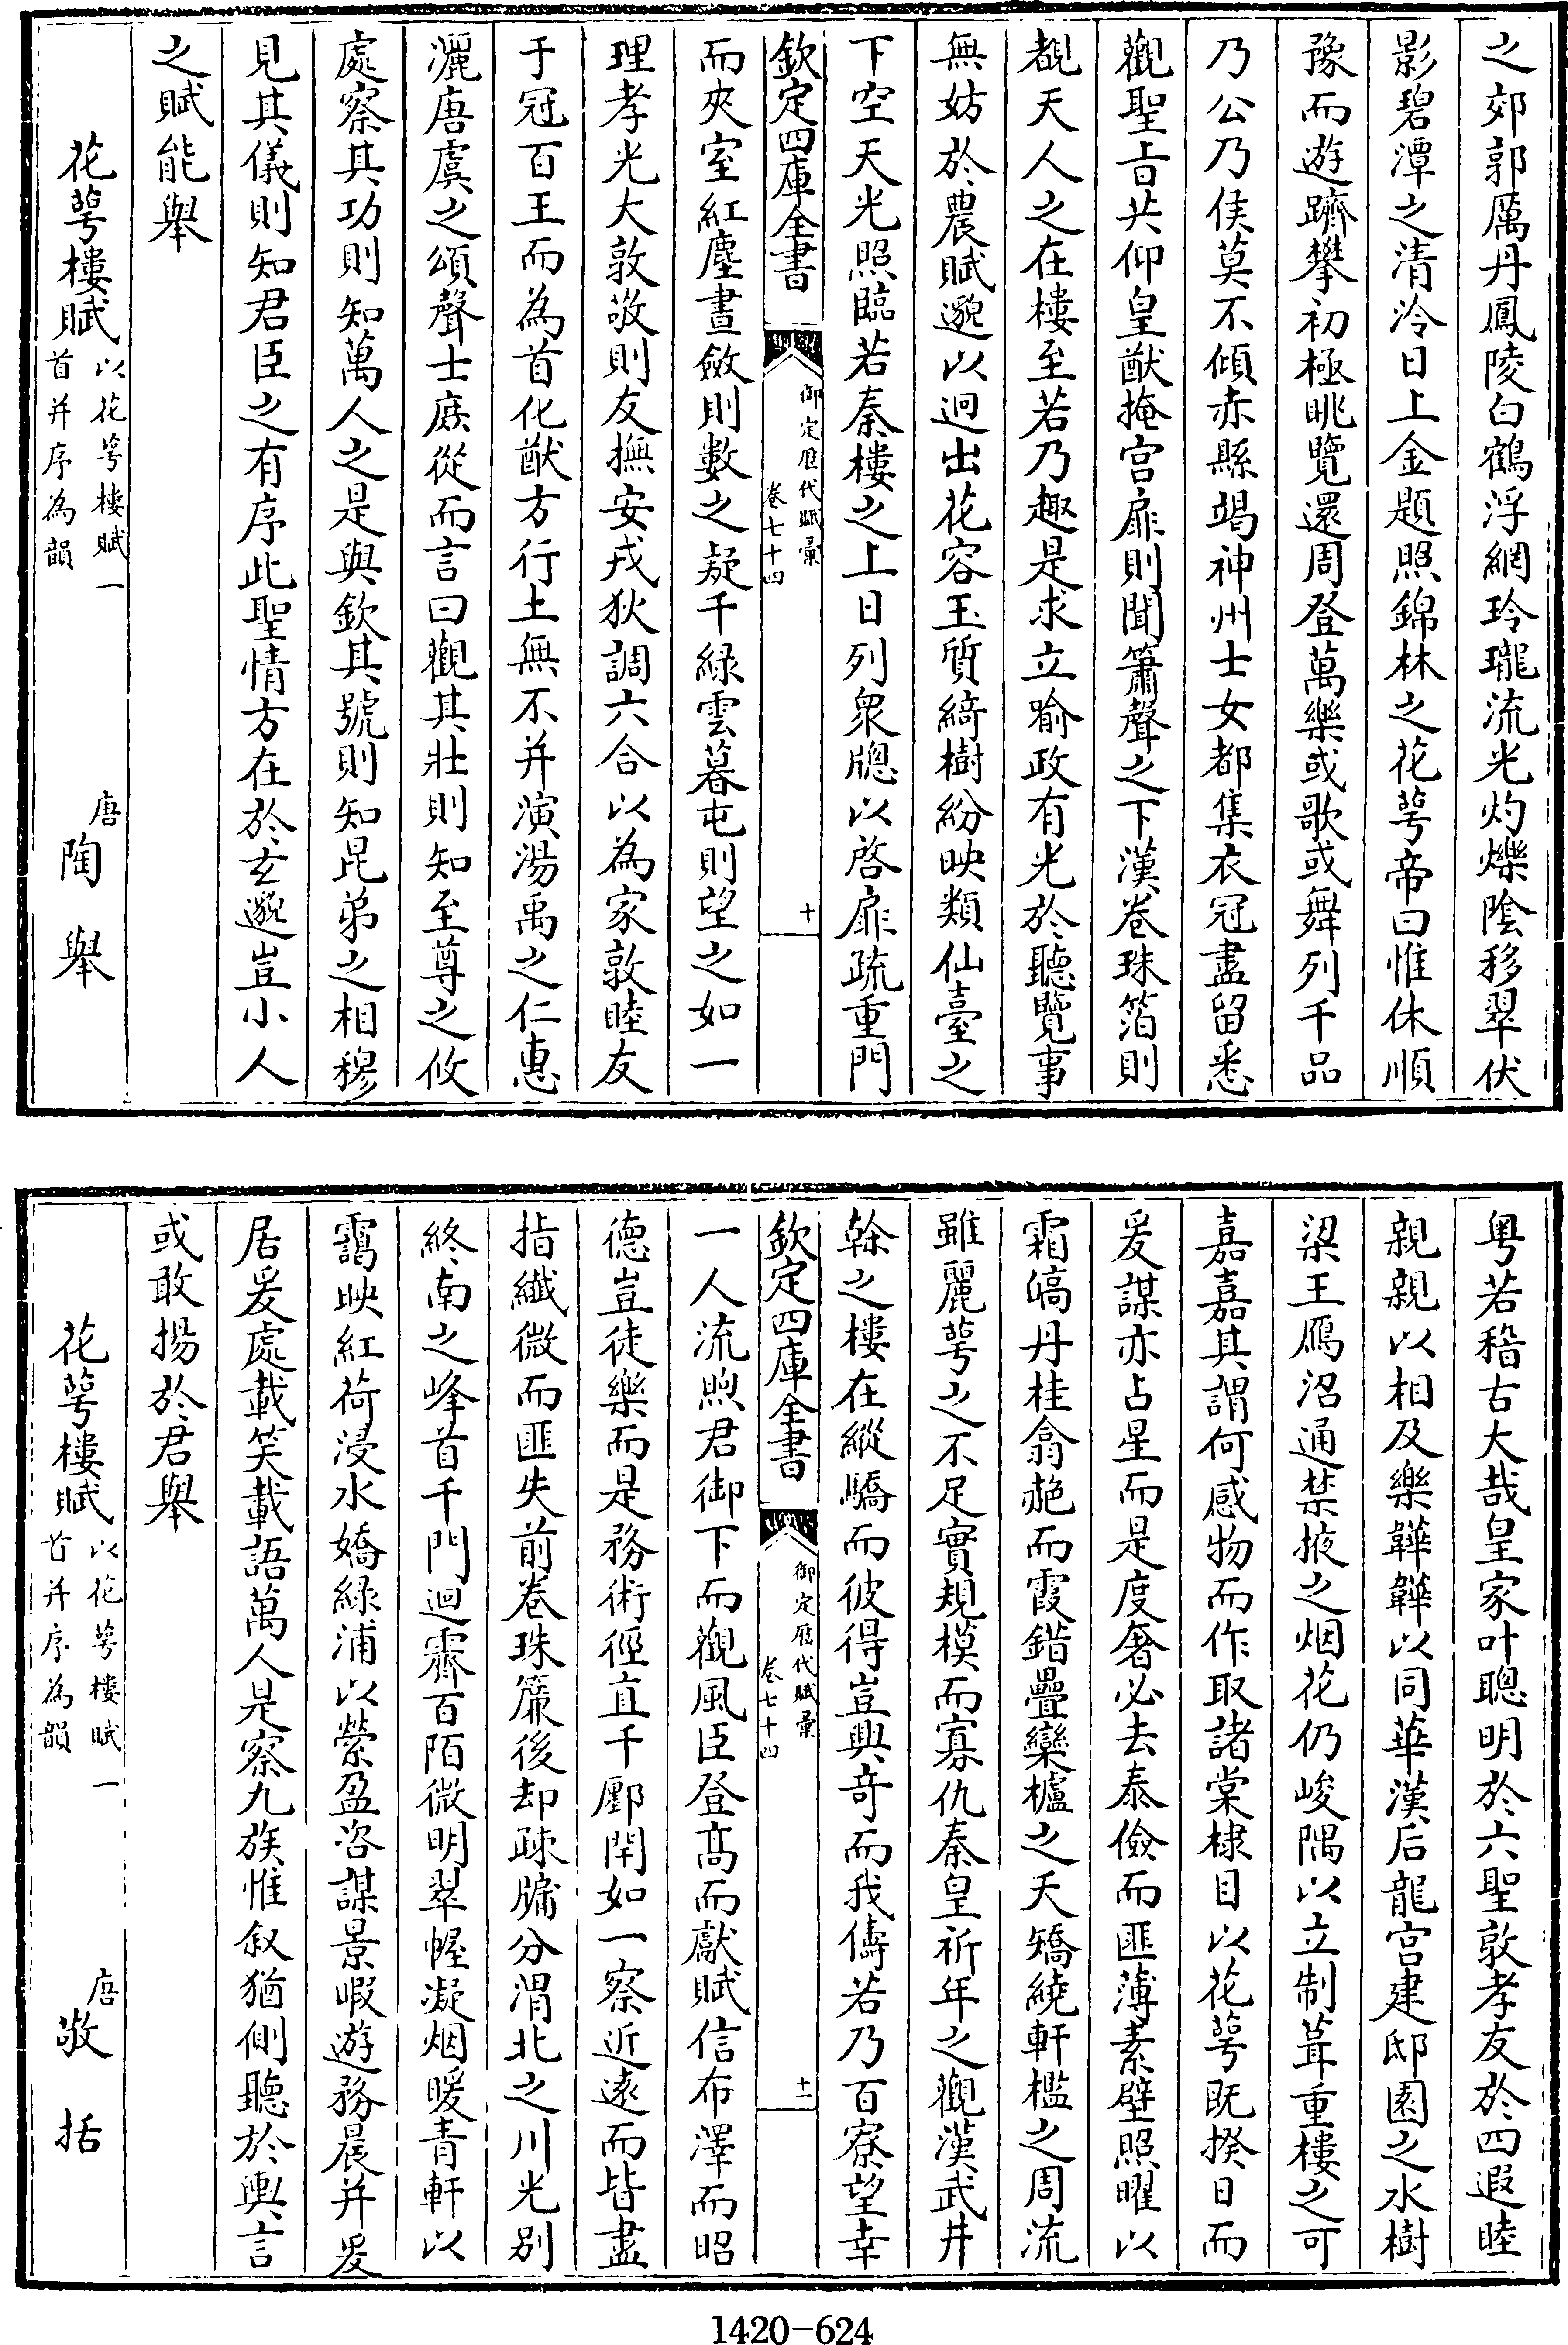 之郊郭厲丹鳳陵白鶴浮網玲瓏流光灼爍陰移翠伏
影碧潭之清泠日上金題照錦林之花萼帝曰惟休順
豫而遊躋攀初極眺覽還周登萬樂或歌或舞列千品
乃公乃侯莫不傾赤縣竭神州士女都集衣冠盡留悉
觀聖㫖共仰皇猷掩宫扉則聞簫聲之下漢卷珠箔則
覩天人之在樓至若乃趣是求立喻政有光於聽覽事
無妨於農賦邈以迥出花容玉質綺樹紛映類仙臺之
下空天光照臨若秦樓之上日列衆牕以啓扉疏重門
欽定四庫全書
御定歴代賦彙
卷七十四
十
而夾室紅塵晝斂則數之疑千緑雲暮屯則望之如一
理孝光大敦敬則友撫安戎狄調六合以為家敦睦友
于冠百王而為首化猷方行土無不并演湯禹之仁惠
灑唐虞之頌聲士庶從而言曰觀其壯則知至尊之攸
處察其功則知萬人之是與欽其號則知昆弟之相穆
見其儀則知君臣之有序此聖情方在於玄邈豈小人
之賦能舉
花萼樓賦
以花萼樓賦一
首并序為韻
唐
陶舉
粤若稽古大哉皇家叶聰明於六聖敦孝友於四遐睦
親親以相及樂韡韡以同華漢后龍宫建邸園之水樹
梁王鴈沼通禁掖之烟花仍峻隅以立制葺重樓之可
嘉嘉其謂何感物而作取諸棠棣目以花萼既揆日而
爰謀亦占星而是度奢必去泰儉而匪薄素壁照曜以
霜皜丹桂翕赩而霞錯疊欒櫨之天矯繞軒檻之周流
雖麗萼之不足實規模而寡仇秦皇祈年之觀漢武井
榦之樓在縱驕而彼得豈興竒而我儔若乃百寮望幸
欽定四庫全書
御定歴代賦彙
卷七十四
十一
一人流煦君御下而觀風臣登髙而獻賦信布澤而昭
德豈徒樂而是務術徑直千鄽閈如一察近逺而皆盡
指纎微而匪失前卷珠簾後却疎牗分渭北之川光别
終南之峰首千門迴霽百陌微明翠幄凝烟暖青軒以
靄映紅荷浸水嬌緑浦以縈盈咨謀景暇遊務晨并爰
居爰處載笑載語萬人是察九族惟叙猶側聽於輿言
或敢揚於君舉
花萼樓賦
以花萼樓賦一
首并序為韻
唐
敬括
1420-624